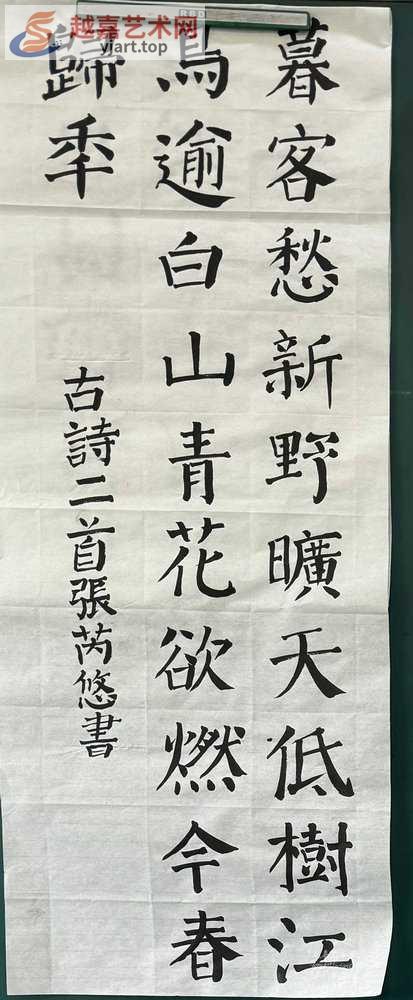 越嘉艺术网
yjart.top
暮客愁新野曠天低樹江
鳥逾白山青花欲燃今春
歸年
古詩二首張芮悠書